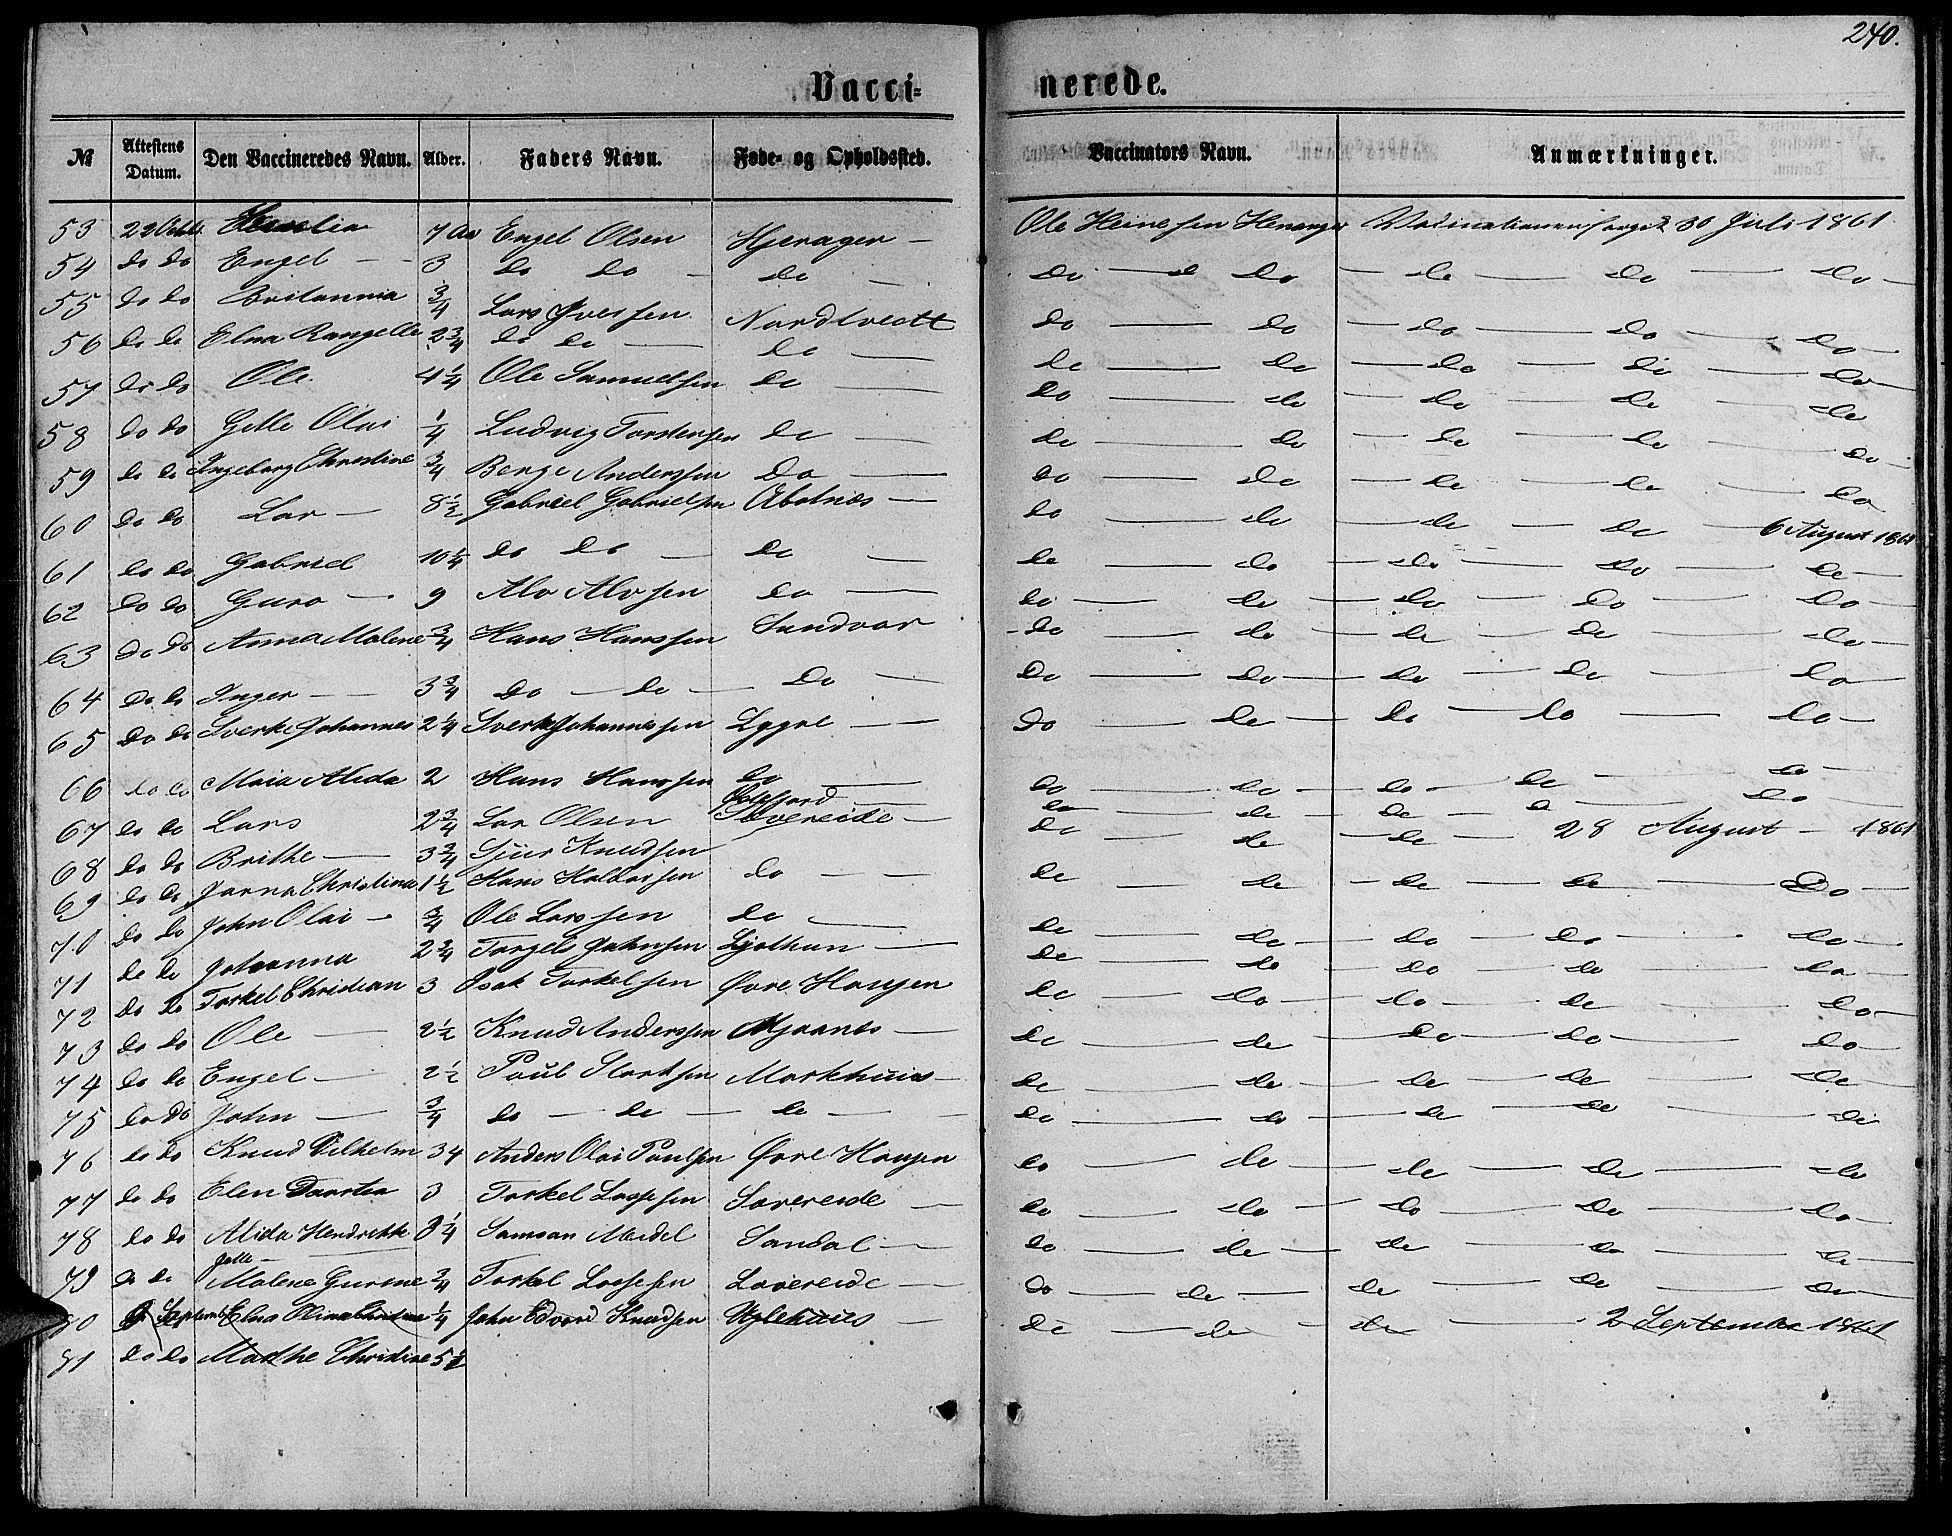 240.
Vacci-nerede.
№ Attestens Datum. Den Vaccineredes Navn. Alder. Faders Navn. Føde- og Opholdssted. Vaccinators Navn. Anmærkninger.
53 22 Octbr 7 Engel Olsen Hjerager — Ole Heinessen 30 Juli 1861
54 do do Engel — 3 do do — do — do — do — do — do — do —
55 do do Britannia 3/4 Lars Iversen Nordtvedt do — do — do — do — do —
56 do do Elna 2 3/4 do do — do — do — do — do — do — do —
57 do do Ole 4 1/4 Ole Samuelsen do — do — do — do — do — do
58 do do Gelle Olai 1/4 Ludvig Torstensen do — do — do — do — do — do —
59 do do Ingeborg Christine 3/4 Berge Anderssen do — do — do — do — do — do
60 do do Lar — 8 1/2 Gabriel Gabrielsen — do — do — do — do — 6 August 1861
61 do do Gabriel 10 1/4 do do — do — do — do — do — do — do —
62 do do Guro — 9 Alv Alvsen do — do — do — do — do — do —
63 do do Anna Malene 3/4 Hans Hanssen Sandvor do — do — do — do — do —
64 do do Inger — 3 3/4 do — do — do — do — do — do — do — do —
65 do do Sverke Johannes 2 1/4 Sverke Johannessen Lygre — do — do — do — do — do —
66 do do Alida 2 Hans Hanssen do — do — do — do — do — do
67 do do Lars 2 3/4 Lar Olsen do — do — do — d — do
68 do do Brithe — 3 3/4 Sjur Knudsen do — do — do — 28 August — 1861
69 do do Christina 1 1/2 Hans do — do — do — do — do — Do —
70 do do John Olai — 3/4 Ole Larssen do — do — do — do — do — do —
71 do do Johanna 2 3/4 Torgels Johnsen Ljothun — do — do — do — do — do —
72 do do Torkel Christian 3 Isak Torkelsen Øvre Hougen do — do — do — do — do —
73 do do Ole — 2 1/2 Knud Anderssen — do — do — do — do — do —
74 do do Engel — 2 1/2 Poul Markhuus — do — do — do — do — do —
75 do do John — 3/4 do — do — do — do — do — do — do — do
76 do do Knud Vilhelm 34 Anders Olai Poulsen Øvre Hougen do — do — do — do — do
77 do do Elen 3 Torkel Lassesen — do — do — do — do — do —
78 do do Alida Hendrikke 3 1/4 Samson Sandal — do — do — do — do — do —
79 do do Malene 3/4 Torkel Lassesen — do — do — do — do — do —
80 September Elna 1/4 John Edvard Knudsen do — do — do — 2 September 1861
81 do do Marthe Christine 5 1/2